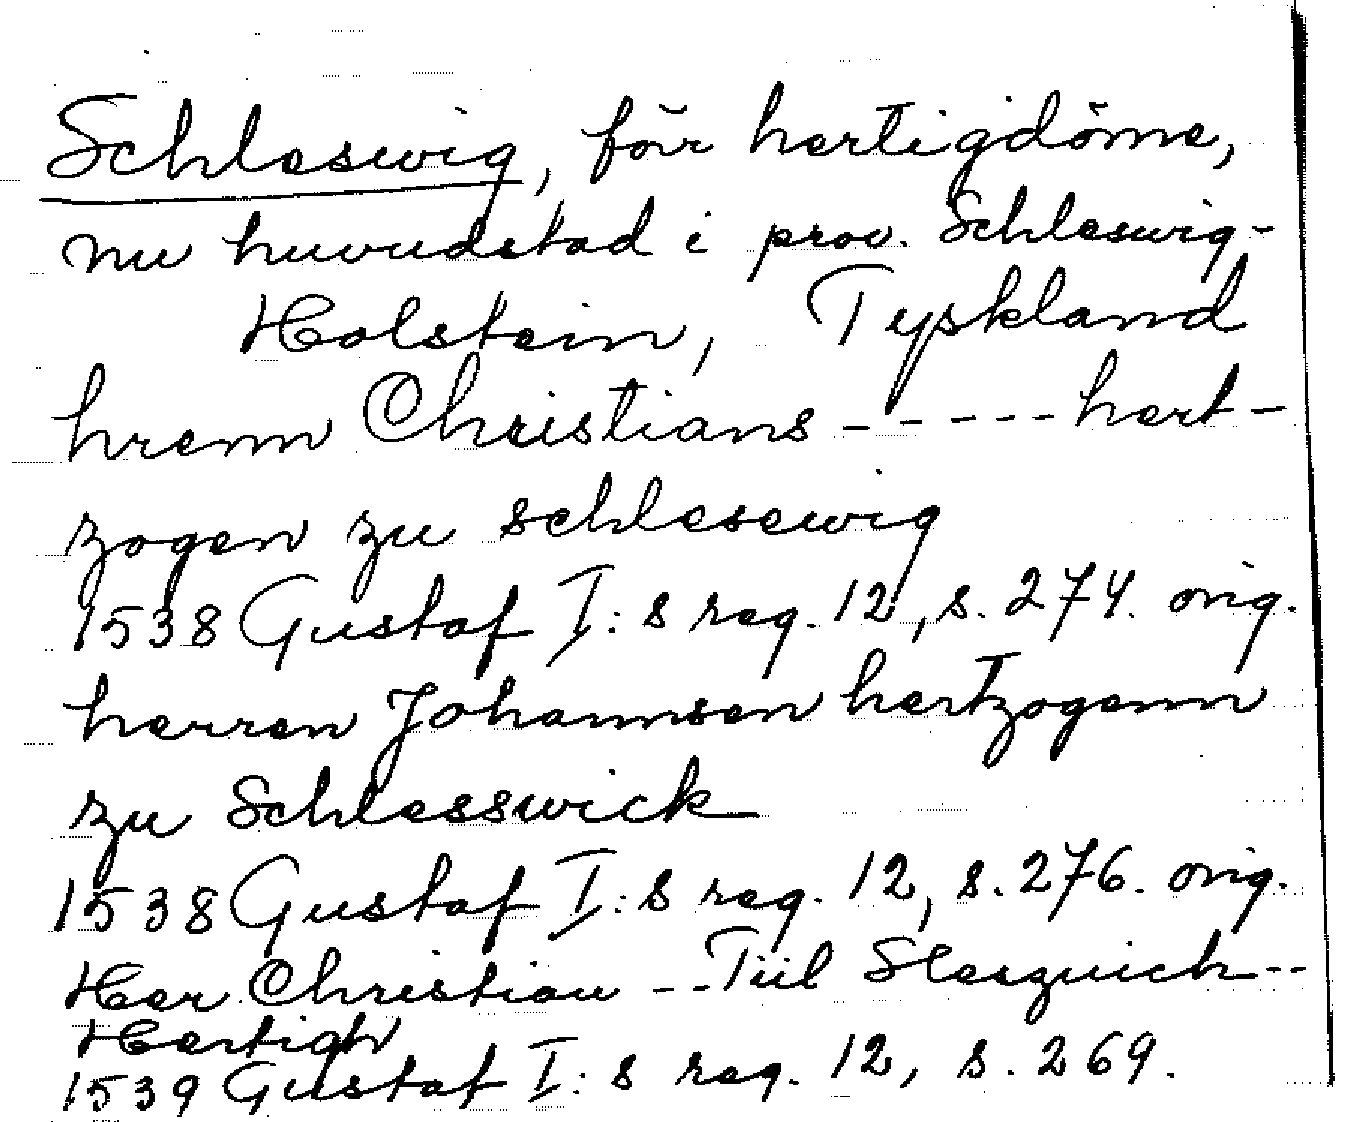 Schleswig, förr hertigdöme,
nu huvudstad i prov. Schleswig-
Holstein, Tyskland
hrenn Christians ----- hert-
zogen zu schlesewig
1538 Gustaf I:s reg. 12, s. 274. orig.
herren Johannsen hertzogenn
zu Schlesswick
1538 Gustaf I:s reg. 12, s. 276. orig.
Her Christian -- Tiil Slesquich --
Hertigh
1539 Gustaf I:s reg. 12, s. 269.